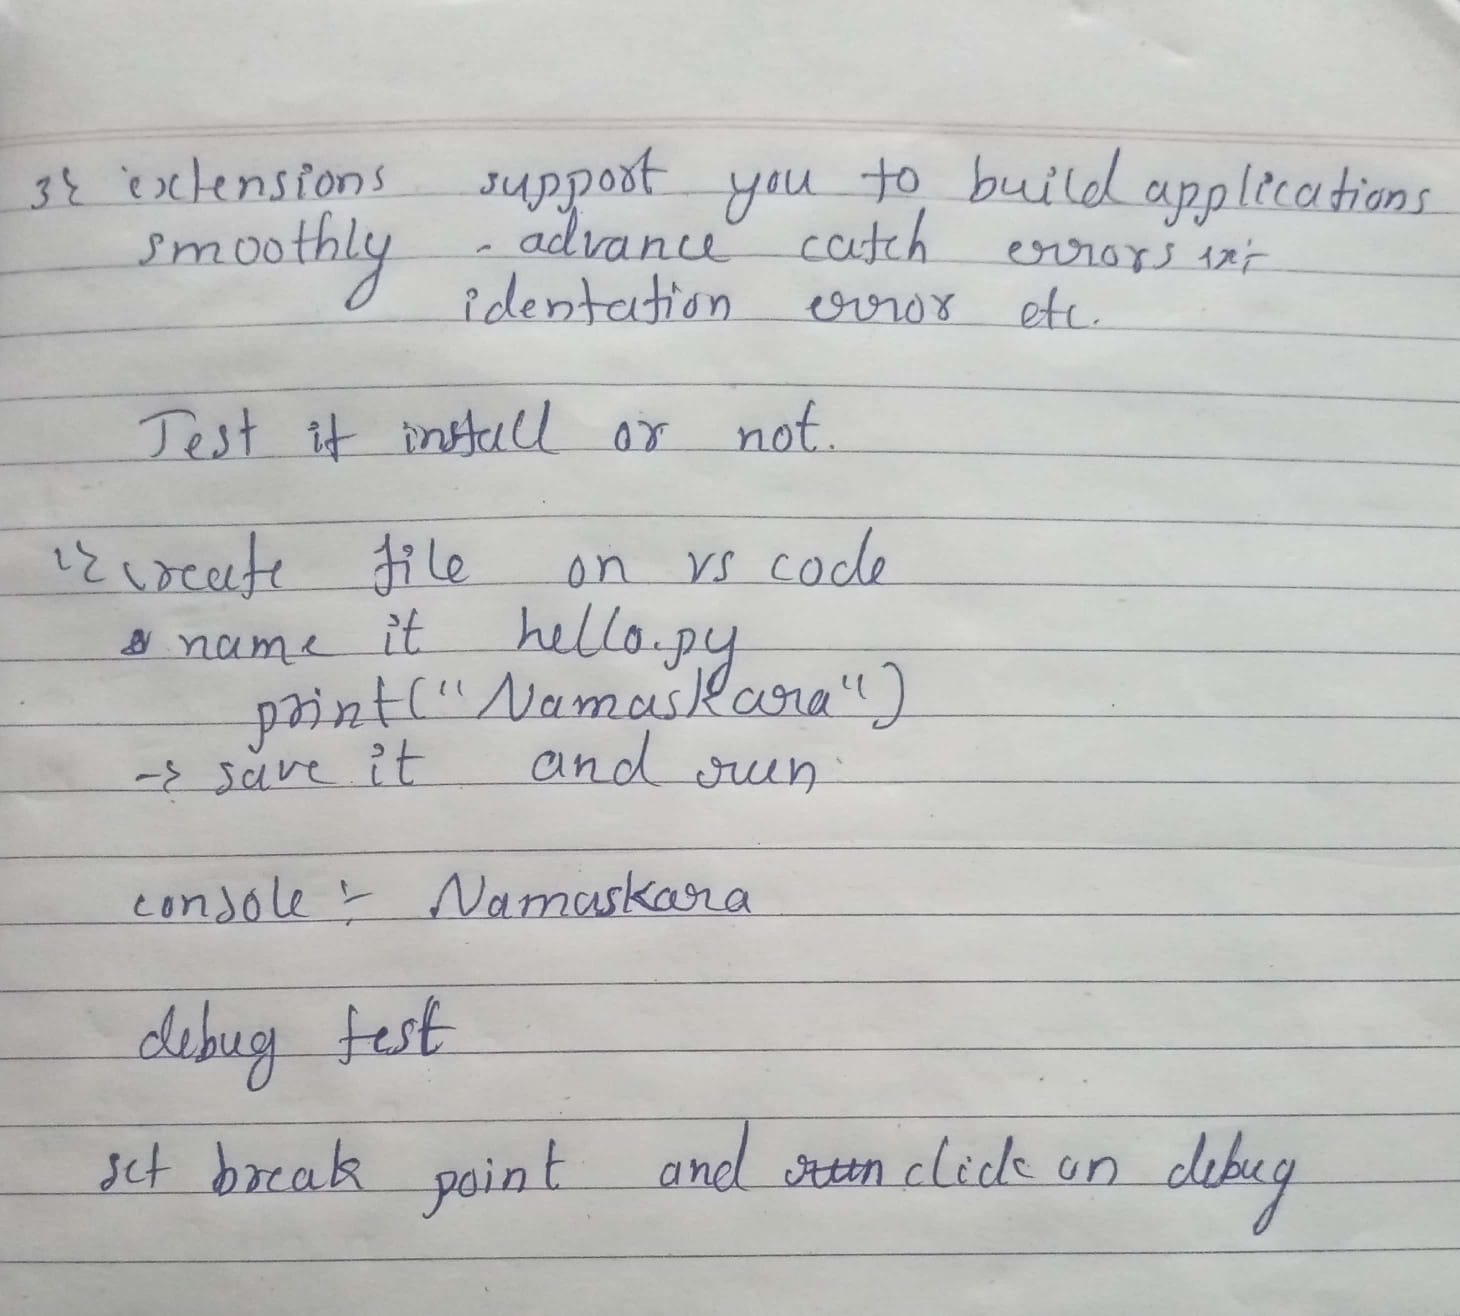 3} extensions support you to build applications
smoothly - advance catch errors
identation error etc.
Test it install or not.
1} create file on vs code
name it hello.py
print("Namaskara")
→ save it and run
console :- Namaskara
debug test
set break point and run click on debug